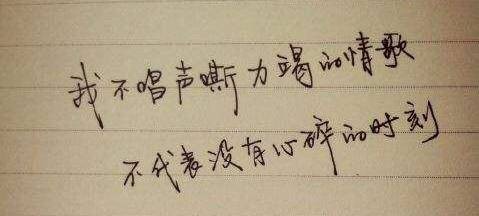 我不唱声嘶力竭的情歌
不代表没有心碎的时刻